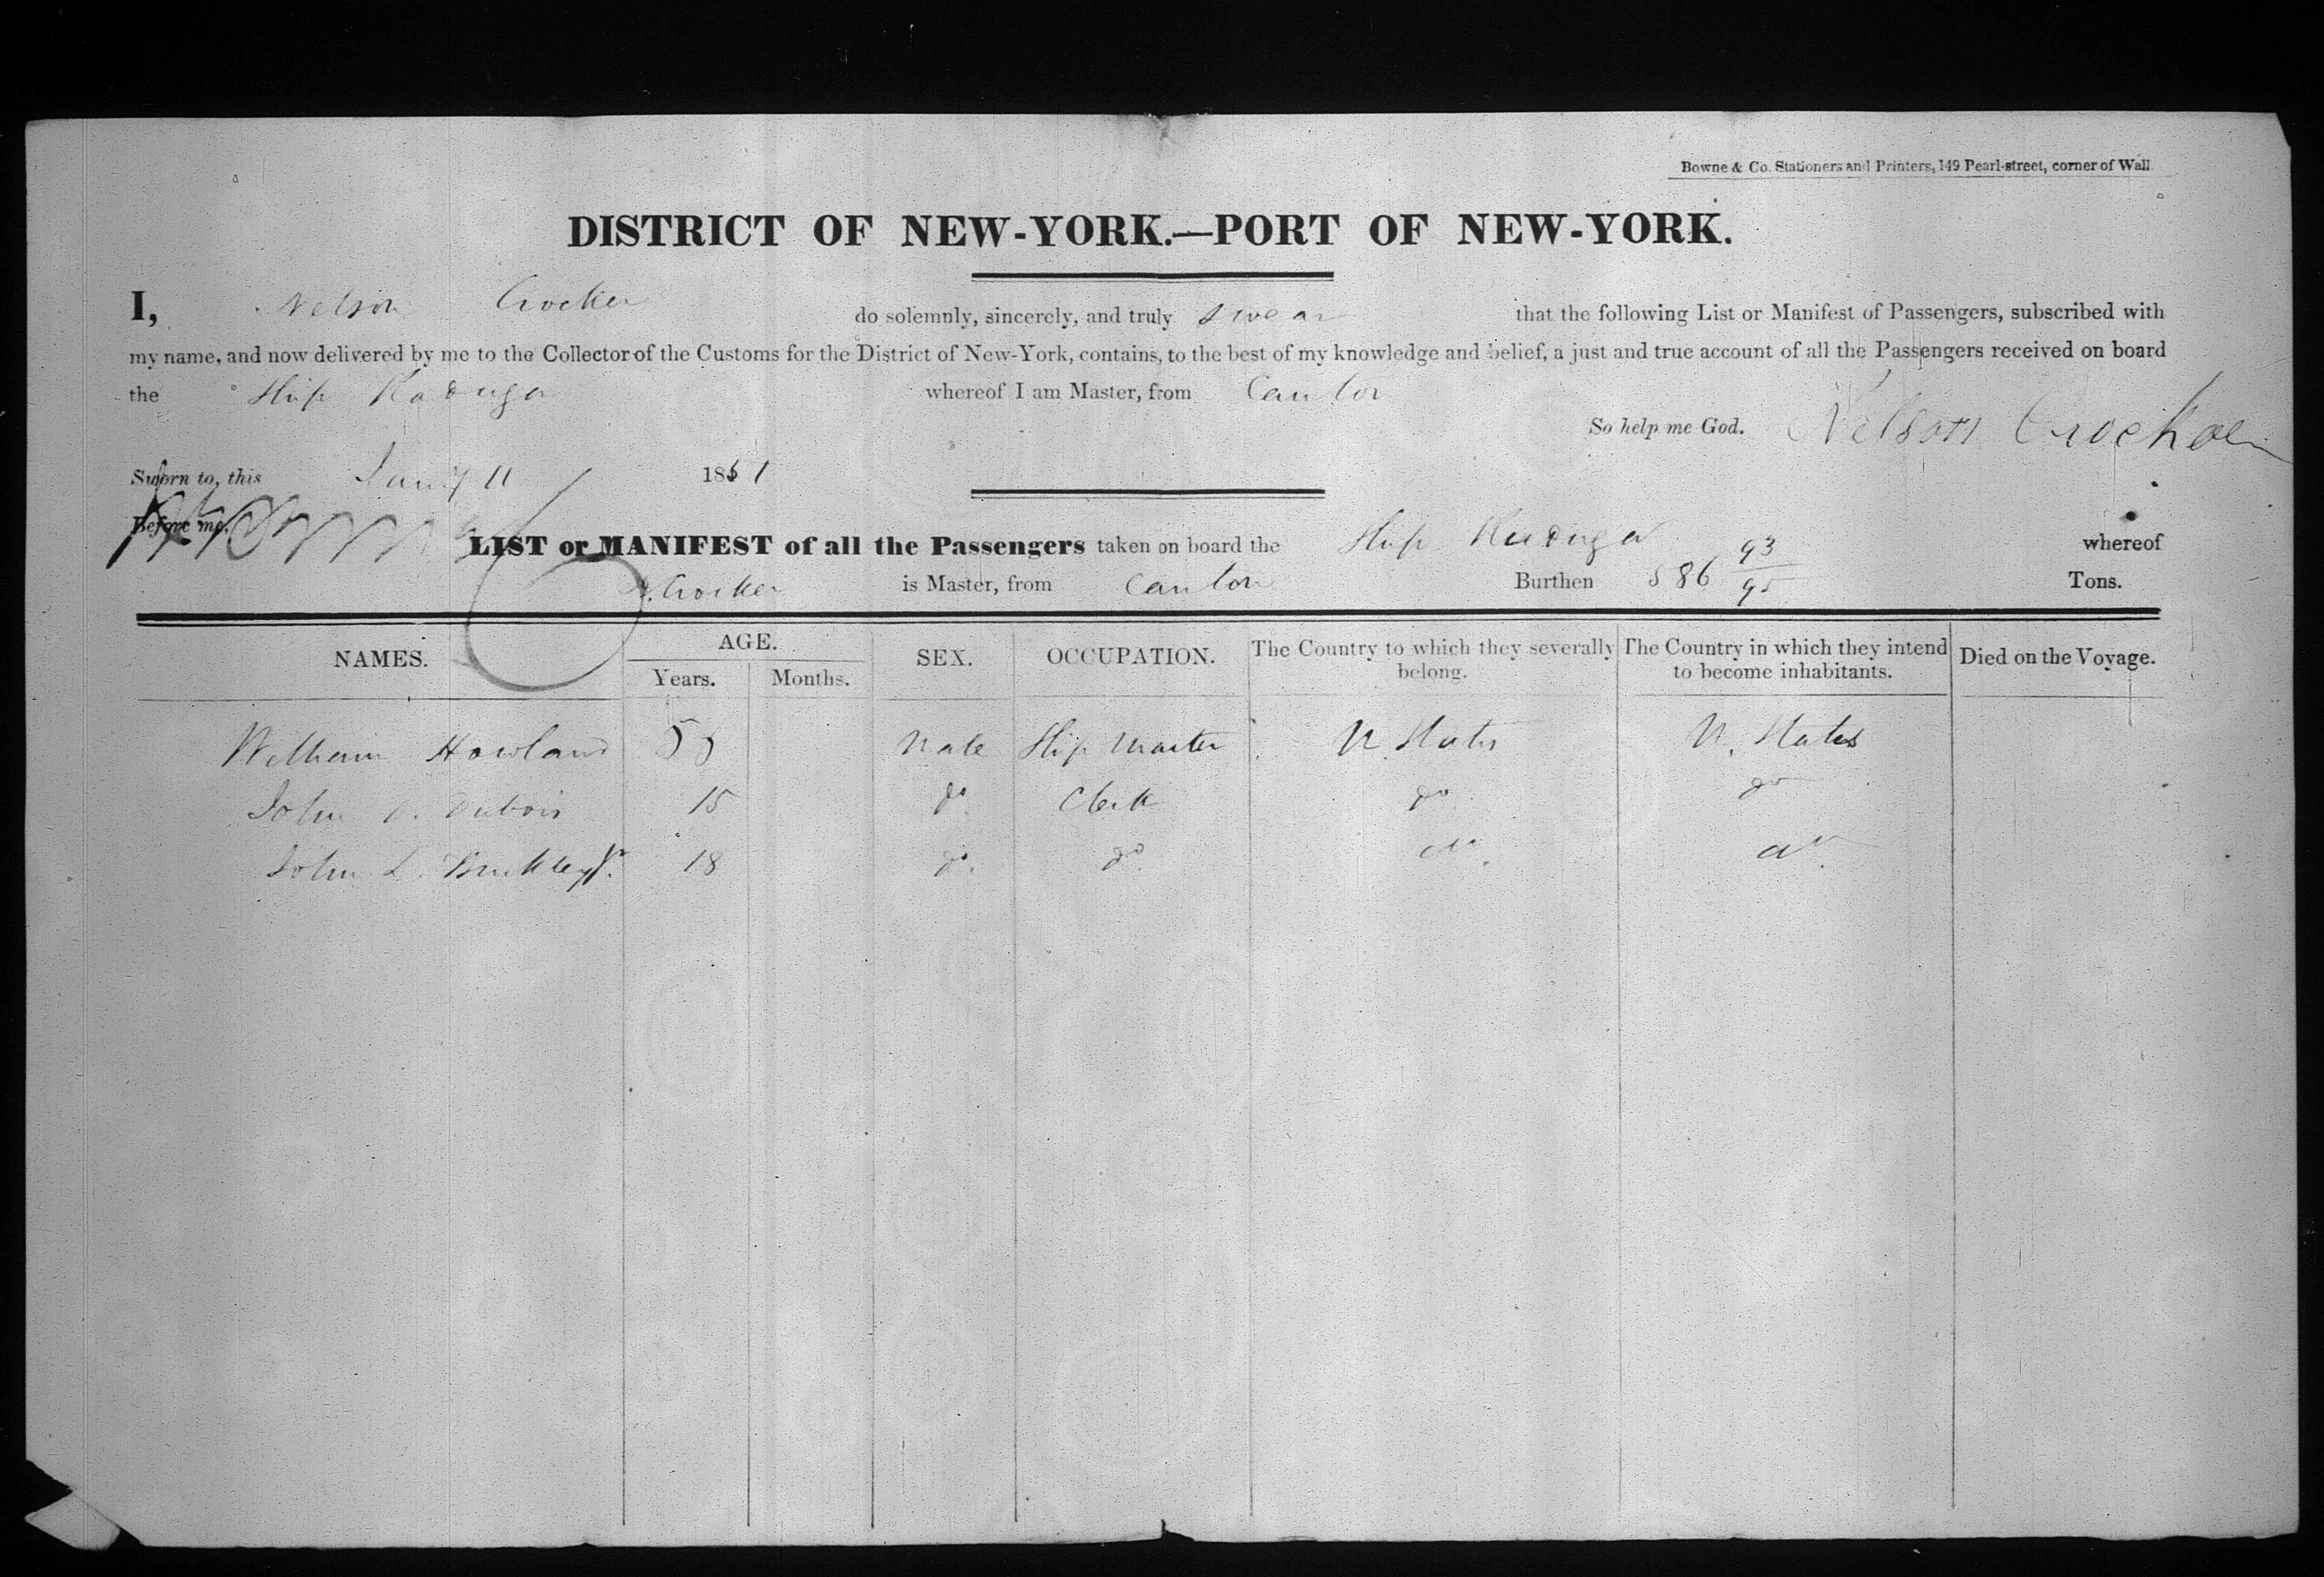 Bowne & Co. Stationers and Printers, 149 Pearl-street, corner of Wall
DISTRICT OF NEW-YORK.—PORT OF NEW-YORK.
I, Nelson Crocker do solemnly, sincerely, and truly swear that the following List or Manifest of Passengers, subscribed with
my name, and now delivered by me to the Collector of the Customs for the District of New-York, contains, to the best of my knowledge and belief, a just and true account of all the Passengers received on board
the Ship Raduga whereof I am Master, from Canton
So help me God. Nelson Crocker
Sworn to, this Jany 11 1861
Before me,
LIST or MANIFEST of all the Passengers taken on board the Ship Raduga whereof
N. Crocker is Master, from Canton Burthen 586 93/95 Tons.
NAMES. AGE. Years. Months. SEX. OCCUPATION. The Country to which they severally belong. The Country in which they intend to become inhabitants. Died on the Voyage.
William Howland Male Ship Master U. States U. States
John Dubois 15 do Clerk do do
John L. Buckley Jr. 18 do. do. do. do.